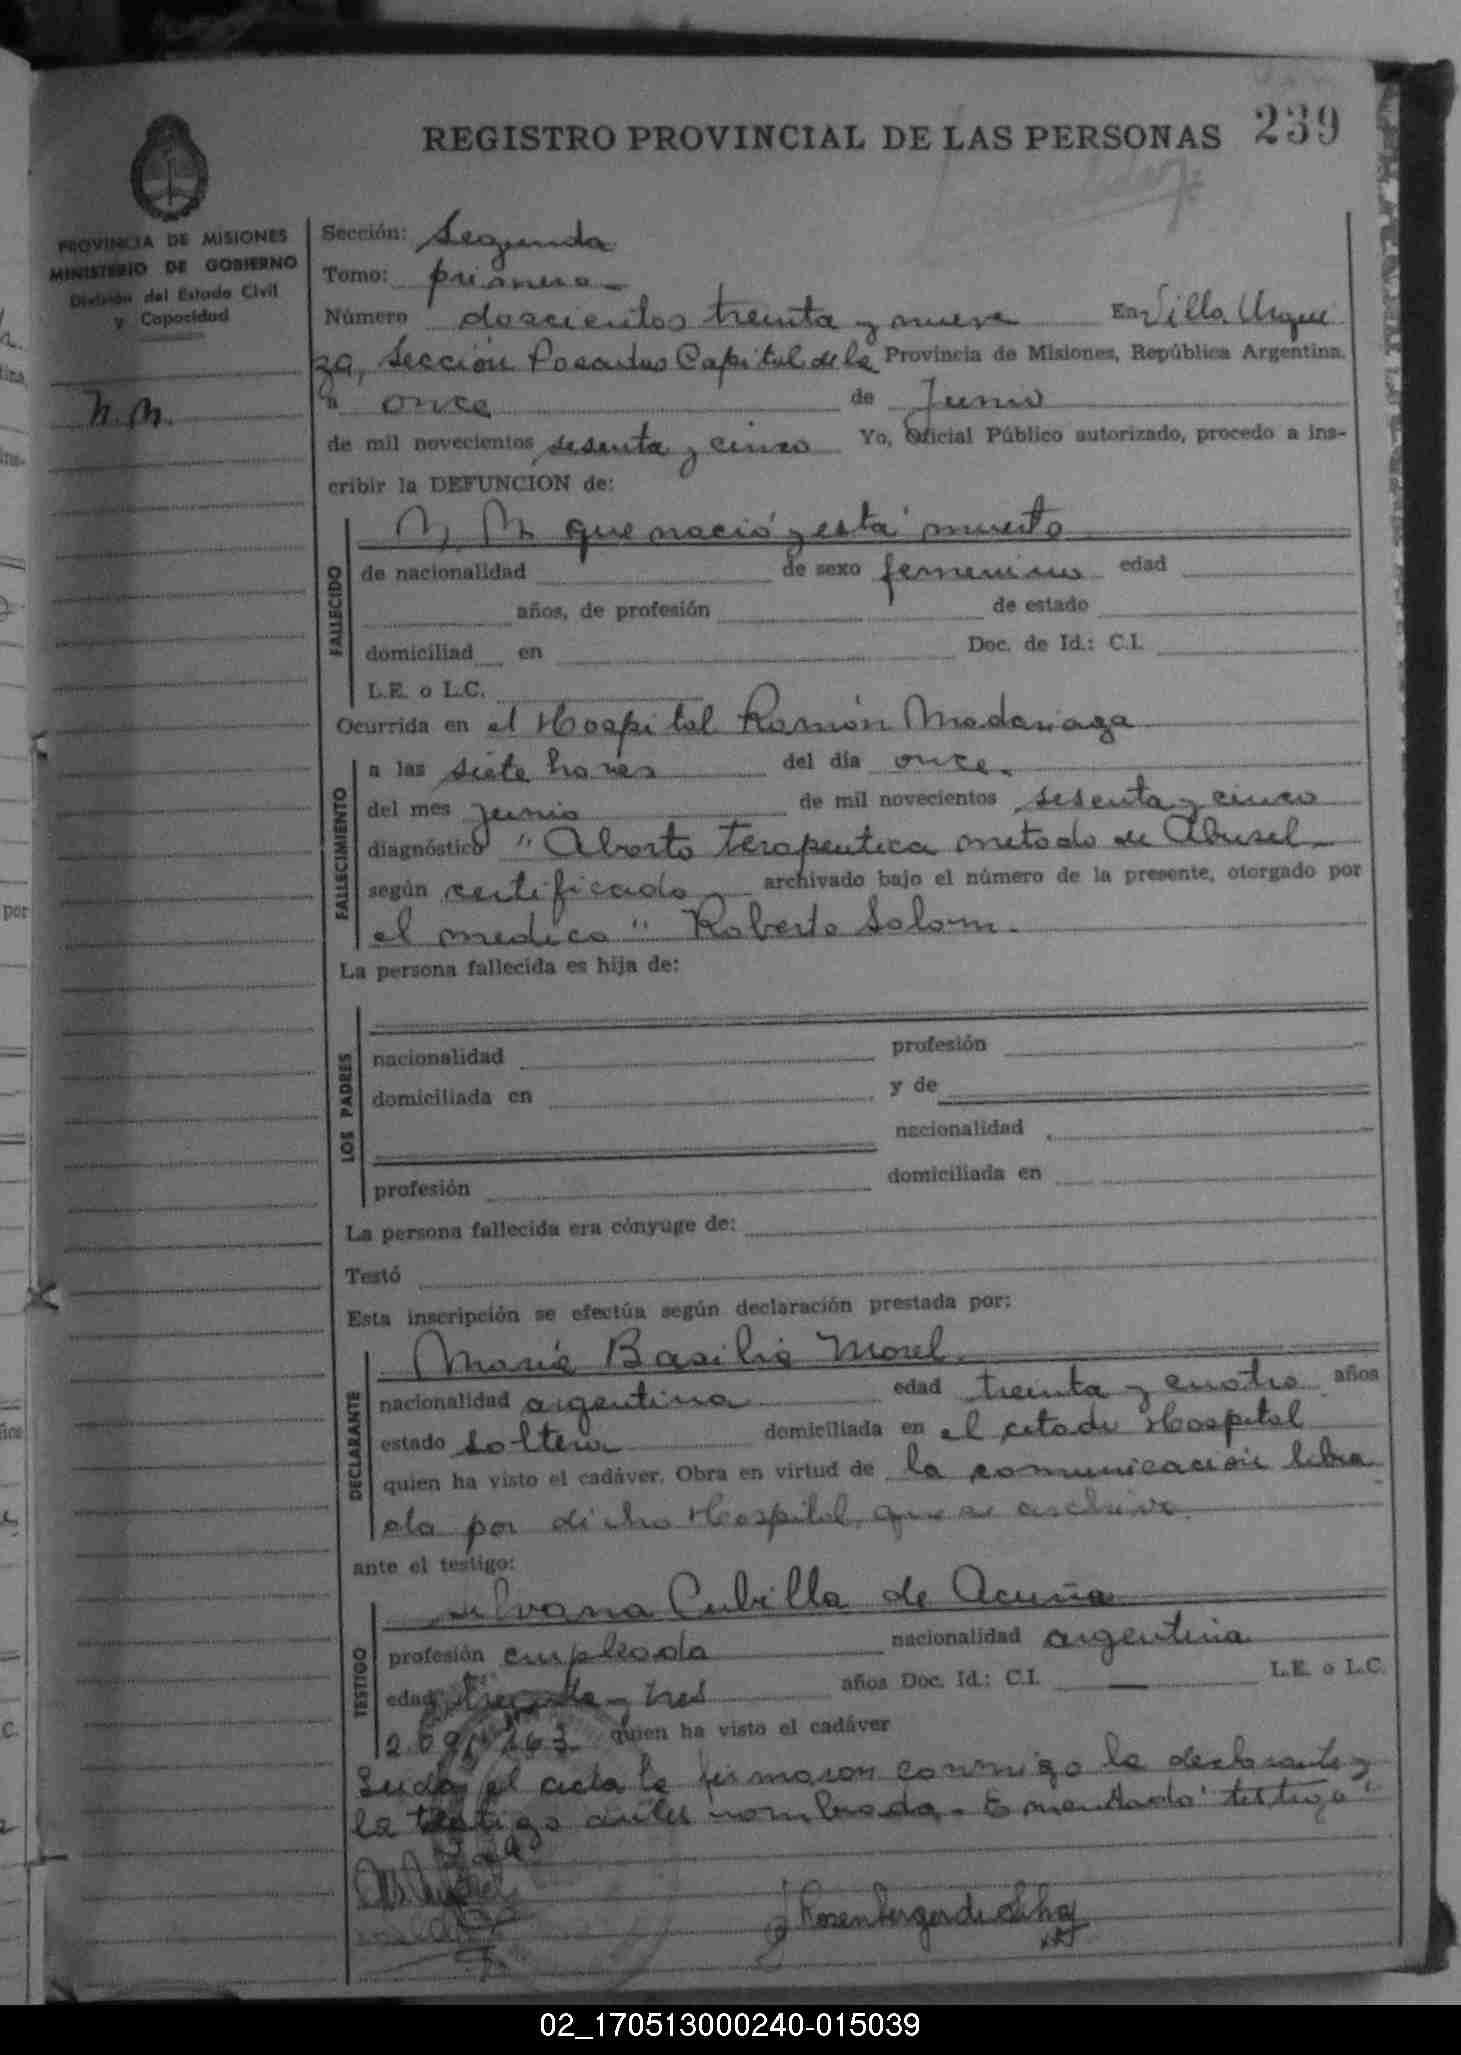 REGISTRO PROVINCIAL DE LAS PERSONAS 239
PROVINCIA DE MISIONES
MINISTERIO DE GOBIERNO
División del Estado Civil
y Capacidad
N.N.
Sección: Segunda
Tomo: primero
Número doscientos treinta y nueve En Villa Urqui
za, Sección Posadas Capital de la Provincia de Misiones, República Argentina.
a once de Junio
de mil novecientos sesenta y cinco Yo, Oficial Público autorizado, procedo a ins-
cribir la DEFUNCION de:
N. N. que nació y está muerto
FALLECIDO
de nacionalidad de sexo femenino edad
años, de profesión de estado
domiciliad en Doc. de Id.: C.I.
L.E. o L.C.
Ocurrida en el Hospital Ramón Madariaga
FALLECIMIENTO
a las siete horas del día once.
del mes junio de mil novecientos sesenta y cinco
diagnóstico "Aborto terapeutica metodo de Abusel
según certificado archivado bajo el número de la presente, otorgado por
el medico" Roberto Solom.
La persona fallecida es hija de:
LOS PADRES
nacionalidad profesión
domiciliada en y de
nacionalidad
profesión domiciliada en
La persona fallecida era cónyuge de:
Testó
Esta inscripción se efectúa según declaración prestada por:
DECLARANTE
María Basilia Morel.
nacionalidad argentina edad treinta y cuatro años
estado soltera domiciliada en el citado Hospital
quien ha visto el cadáver. Obra en virtud de la comunicación libra
da por dicho Hospital, que se archiva.
ante el testigo:
TESTIGO
Silvana Cubilla de Acuña
profesión empleada nacionalidad argentina
edad treinta y tres años Doc. Id.: C.I. — L.E. o L.C.
quien ha visto el cadáver
Leída el acta la firmaron conmigo la declarante y
la testigo antes nombrada. Enmendado "testigo"
02_170513000240-015039